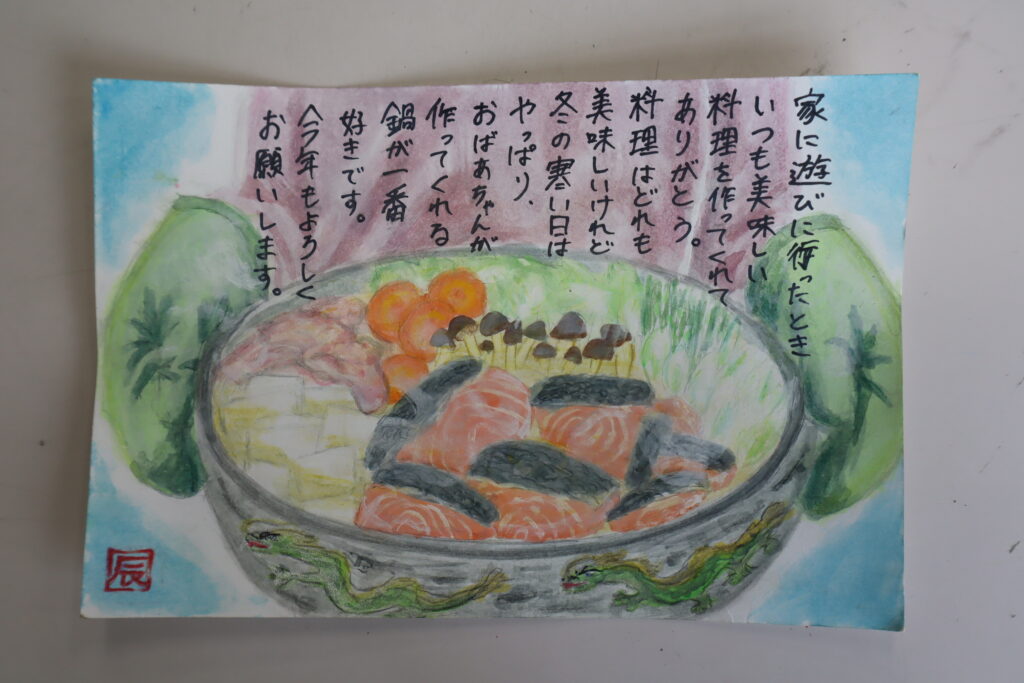 家に遊びに行ったとき
いつも美味しい
料理を作ってくれて
ありがとう。
料理はどれも
美味しいけれど
冬の寒い日は
やっぱり、
おばあちゃんが
作ってくれる
鍋が一番
好きです。
今年もよろしく
お願いします。
辰